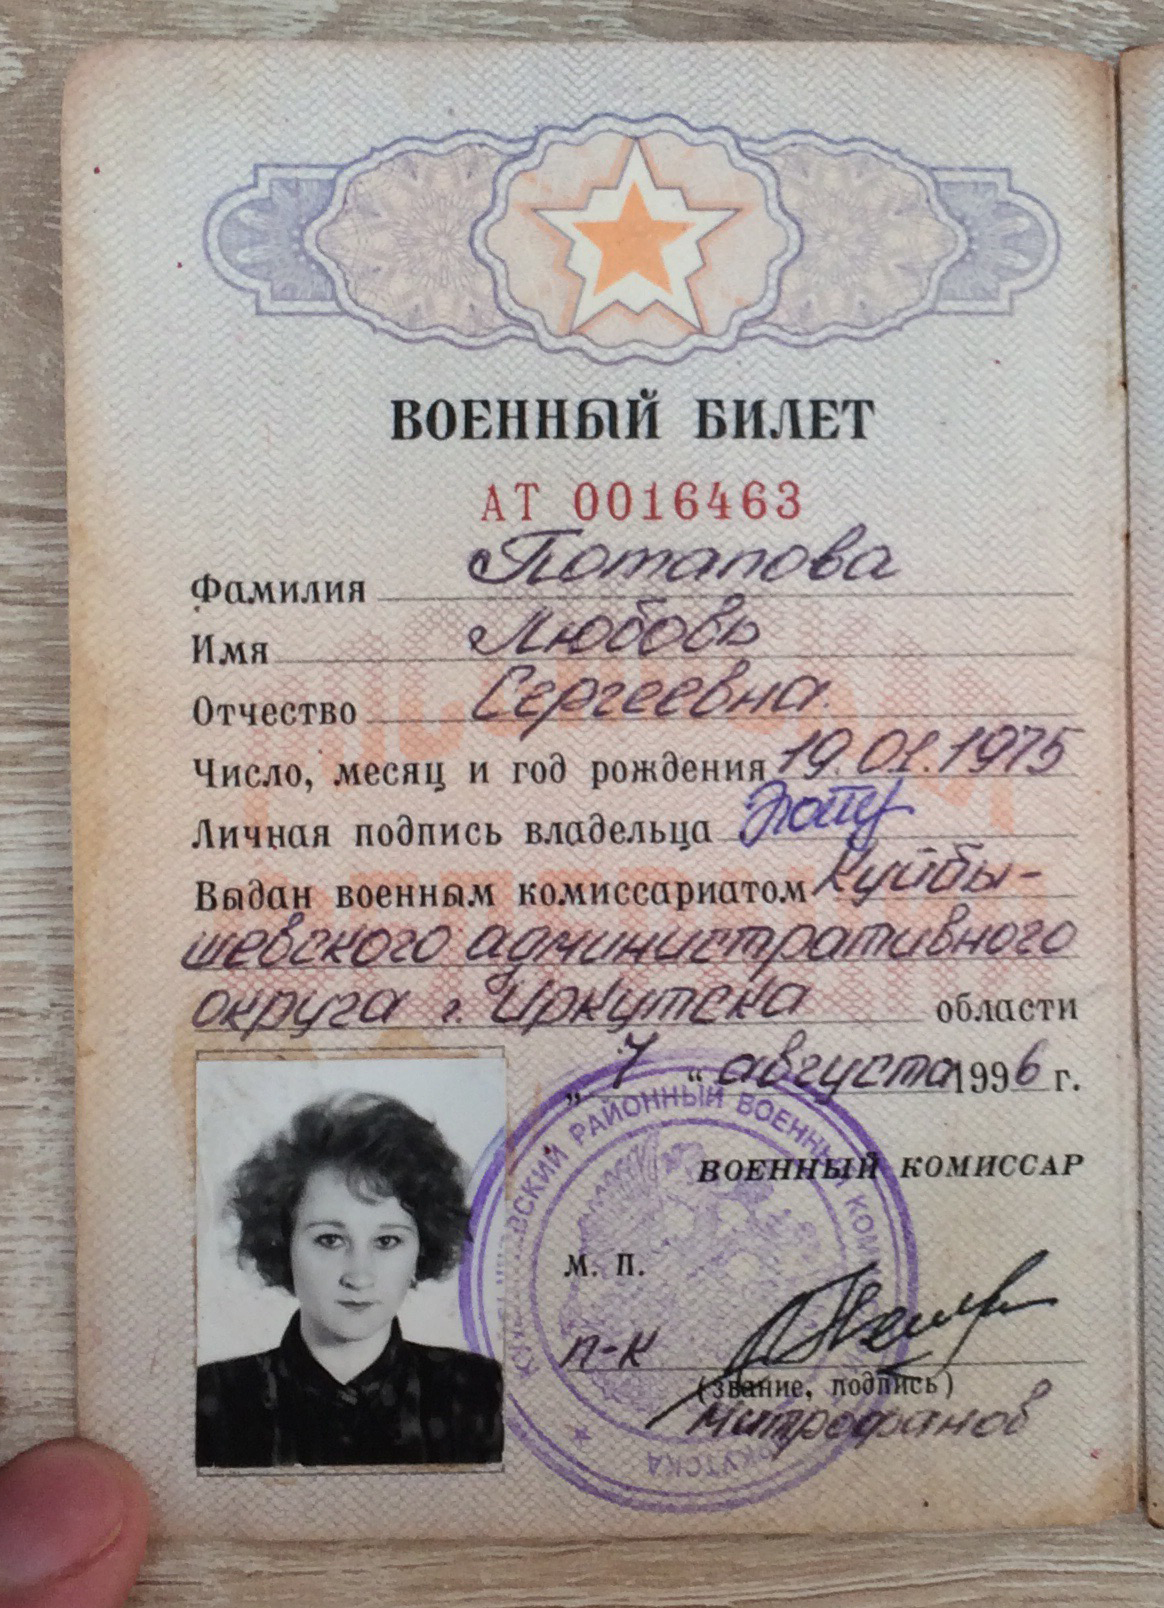 ВОЕННЫЙ БИЛЕТ
АТ 0016463
Фамилия Потапова
Имя Любовь
Отчество Сергеевна
Число, месяц и год рождения 19.01.1975
Личная подпись владельца
Выдан военным комиссариатом Куйбы-
шевского административного
округа г. Иркутска области
„ 7 “ августа 1996 г.
ВОЕННЫЙ КОМИССАР
М. П.
п-к
(звание, подпись)
Митрофанов
РАЙОННЫЙ ВОЕННЫЙ